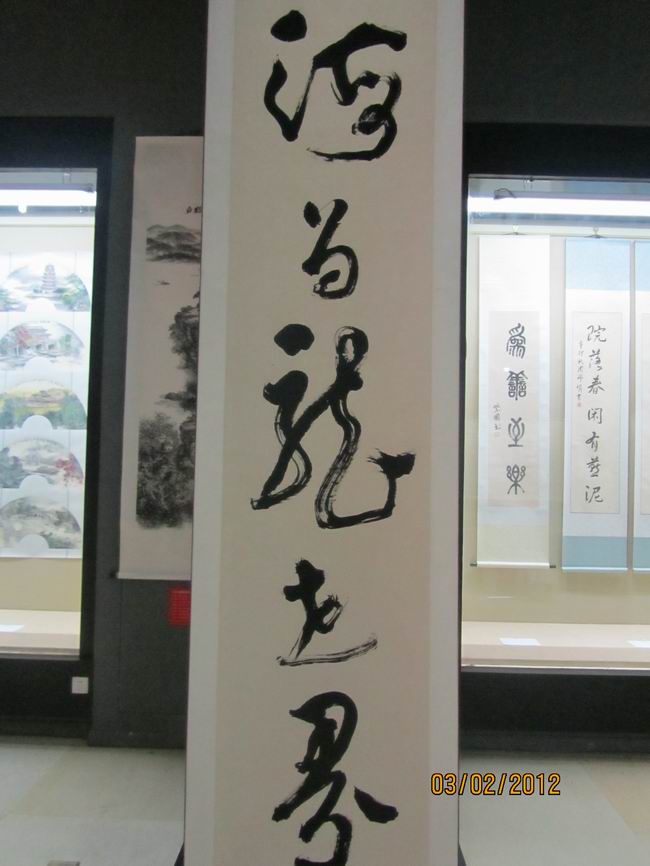 海為龍世界
為善至樂
院落春閑有燕泥
03/02/2012